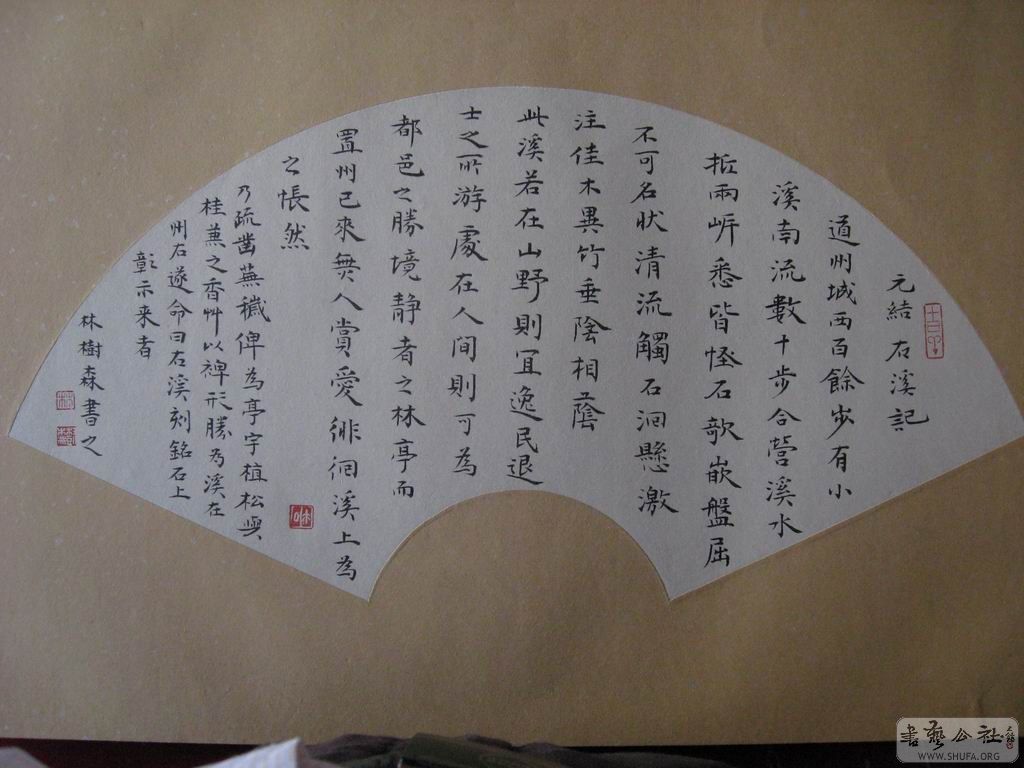 元結右溪記
道州城西百餘步有小
溪南流數十步合營溪水
抵兩岍悉皆怪石欹嵌盤屈
不可名狀清流觸石洄懸激
注佳木異竹垂陰相蔭
此溪若在山野則宜逸民退
士之所游處在人間則可為
都邑之勝境靜者之林亭而
置州已來無人賞愛徘徊溪上為
之悵然
乃疏凿蕪穢俾為亭宇植松與
桂兼之香艸以裨形勝為溪在
州右遂命曰右溪刻銘石上
彰示来者
林樹森書之
書藝公社
WWW.SHUFA.ORG